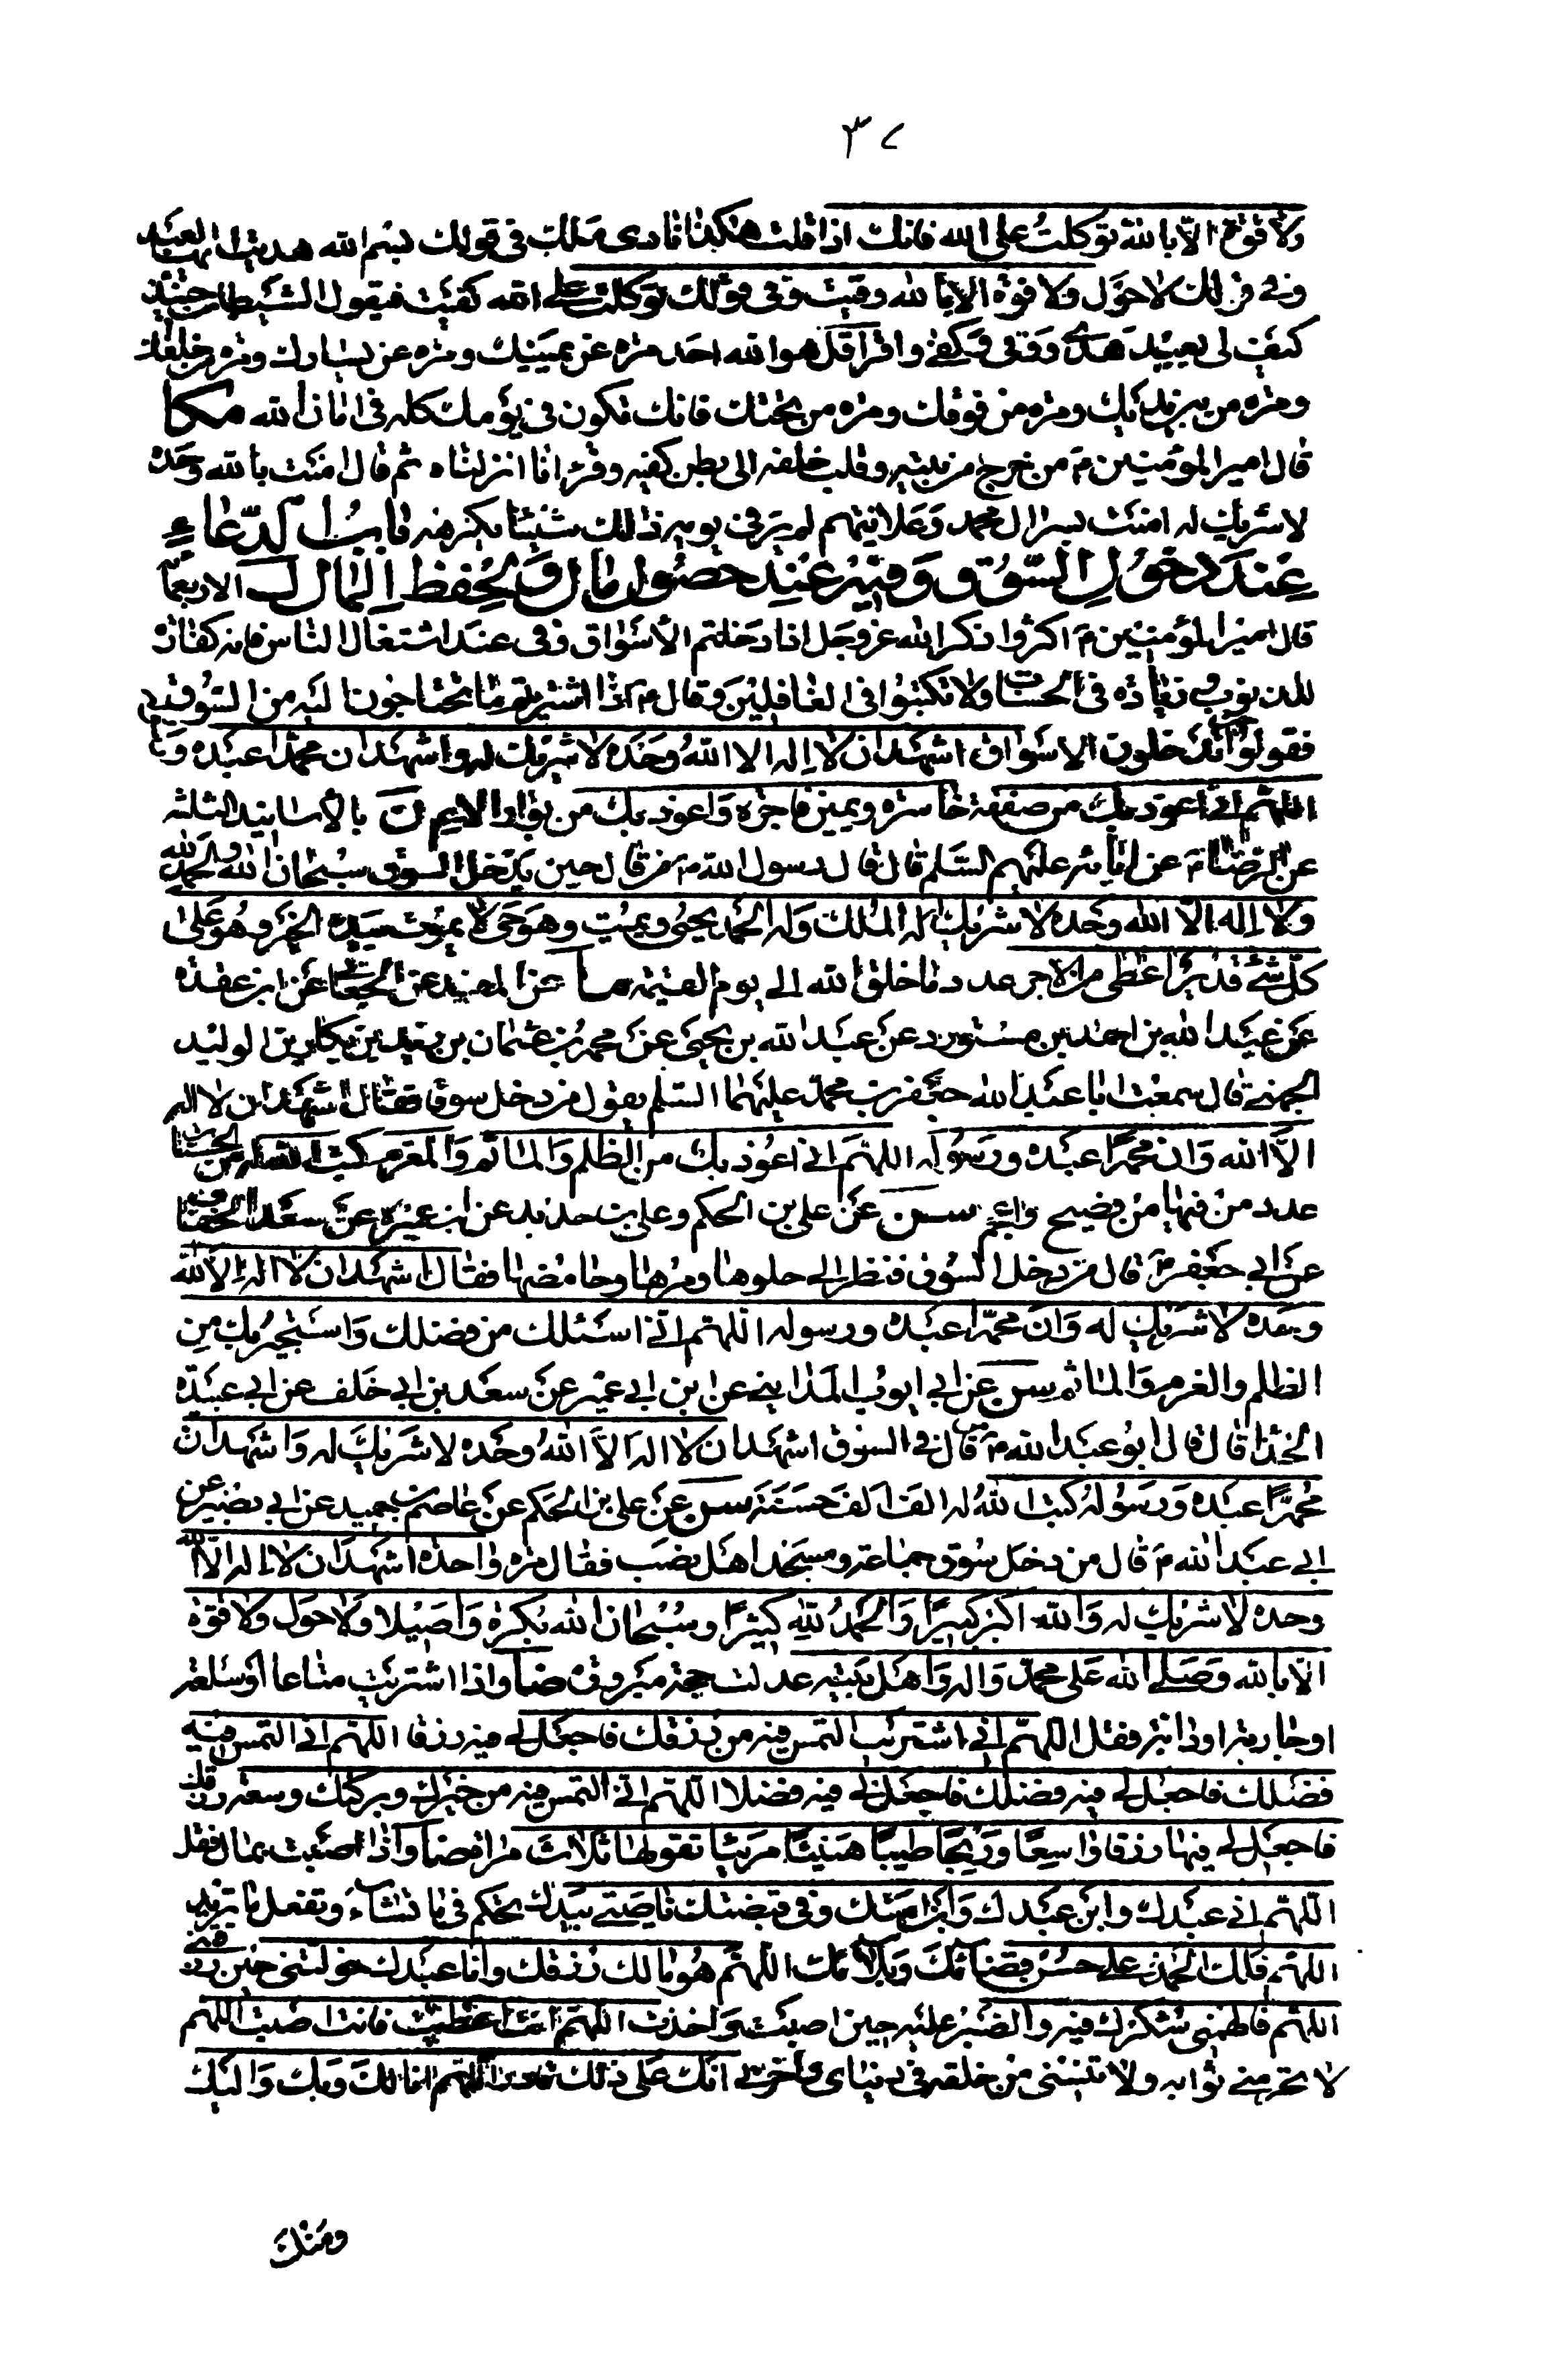 ٣٧
ولا قوة الا بالله توكلت على الله فانك اذا قلت هكذا نادى ملك في قولك بسم الله هديت ايها العبد
وفي قولك لا حول ولا قوة الا بالله وقيت وفي قولك توكلت على الله كفيت فيقول الشيطان حينئذ
كيف لي بعبد هدى ووقى وكفى واقرا قل هو الله احد مرة عن يمينك ومرة عن يسارك ومرة خلفك
ومرة من بين يديك ومرة من فوقك ومرة من تحتك فانك تكون في يومك كله في امان الله مكا
قال امير المؤمنين م من خرج من بيته وقلب خاتمه الى بطن كفه وقرا انا انزلناه ثم قال امنت بالله وحده
لا شريك له امنت بسر ال محمد وعلانيتهم لم ير في يومه ذلك شيئا يكرهه باب الدعاء
عند دخول السوق وفيه وعند حصول مال ولحفظ المال الاربعمائة
قال امير المؤمنين م اكثروا ذكر الله عز وجل اذا دخلتم الاسواق وفي عند اشتغال الناس فانه كفارة
للذنوب وزيادة في الحسنات ولا تكتبوا في الغافلين وقال م اذا اشتريتم ما تحتاجون اليه من السوق
فقولوا حين تدخلون الاسواق اشهد ان لا اله الا الله وحده لا شريك له واشهد ان محمدا عبده و
اللهم اني اعوذ بك من صفقة خاسرة ويمين فاجرة واعوذ بك من بوار الايم ن بالاسانيد الثلثة
عن الرضا م عن ابائه عليهم السلم قال قال رسول الله م من قال حين يدخل السوق سبحان الله والحمد لله
ولا اله الا الله وحده لا شريك له له الملك وله الحمد يحيي ويميت وهو حي لا يموت بيده الخير وهو على
كل شئ قدير اعطى من الاجر عدد ما خلق الله الى يوم القيمة ما عن المفيد عن الجعابي عن ابن عقدة
عن عبد الله بن احمد بن مستورد عن عبد الله بن يحيى عن محمد بن عثمان بن زيد بن بكار بن الوليد
الجهني قال سمعت ابا عبد الله جعفر بن محمد عليهما السلم يقول من دخل سوقا فقال اشهد ان لا اله
الا الله وان محمدا عبده ورسوله اللهم اني اعوذ بك من الظلم والماثم والمغرم كتب الله له من الحسنات
عدد من فيها من فصيح واعجم سن عن علي بن الحكم وعلي بن حديد عن ابن عميرة عن سعد الخفاف
عن ابي جعفر م قال من دخل السوق فنظر الى حلوها ومرها وحامضها فقال اشهد ان لا اله الا الله
وحده لا شريك له وان محمدا عبده ورسوله اللهم اني اسئلك من فضلك واستجير بك من
الظلم والغرم والماثم سن عن ابي ايوب المدايني عن ابن ابي عمير عن سعد بن ابي خلف عن ابي عبيدة
الحذا قال قال ابو عبد الله م من قال في السوق اشهد ان لا اله الا الله وحده لا شريك له واشهد ان
محمدا عبده ورسوله كتب الله له الف الف حسنة سن عن علي بن الحكم عن عاصم بن حميد عن ابي بصير عن
ابي عبد الله م قال من دخل سوق جماعة ومسجد اهل نصب فقال مرة واحدة اشهد ان لا اله الا الله
وحده لا شريك له والله اكبر كبيرا والحمد لله كثيرا وسبحان الله بكرة واصيلا ولا حول ولا قوة
الا بالله وصلى الله على محمد واله واهل بيته عدلت حجة مبرورة ضا واذا اشتريت متاعا او سلعة
او جارية او دابة فقل اللهم اني اشتريت التمس فيه من رزقك فاجعل لي فيه رزقا اللهم اني التمس فيه
فضلك فاجعل لي فيه فضلك فاجعل لي فيه فضلا اللهم اني التمس فيه من خيرك وبركتك وسعة رزقك
فاجعل لي فيها رزقا واسعا وربحا طيبا هنيئا مريئا تقولها ثلاث مرات ضا واذا اصبت بمال فقل
اللهم اني عبدك وابن عبدك وابن امتك وفي قبضتك ناصيتي بيدك تحكم في ما تشاء وتفعل ما تريد
اللهم فلك الحمد على حسن قضائك وبلائك اللهم هو مالك ورزقك وانا عبدك خولتني حين رزقتني
اللهم فالهمني شكرك فيه والصبر عليه حين اصبت واخذت اللهم انت اعطيت فانت اصبت اللهم
لا تحرمني ثوابه ولا تنسني من خلفه في دنياي واخرتي انك على ذلك قادر اللهم انا لك وبك واليك
ومنك